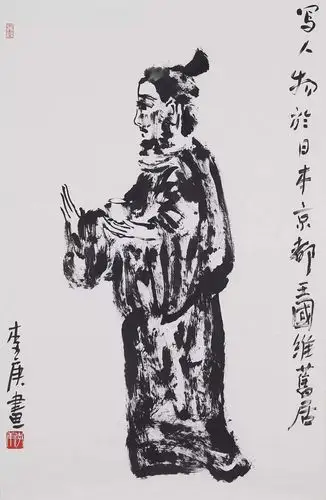 写人物於日本京都王國維舊居
李庚畫